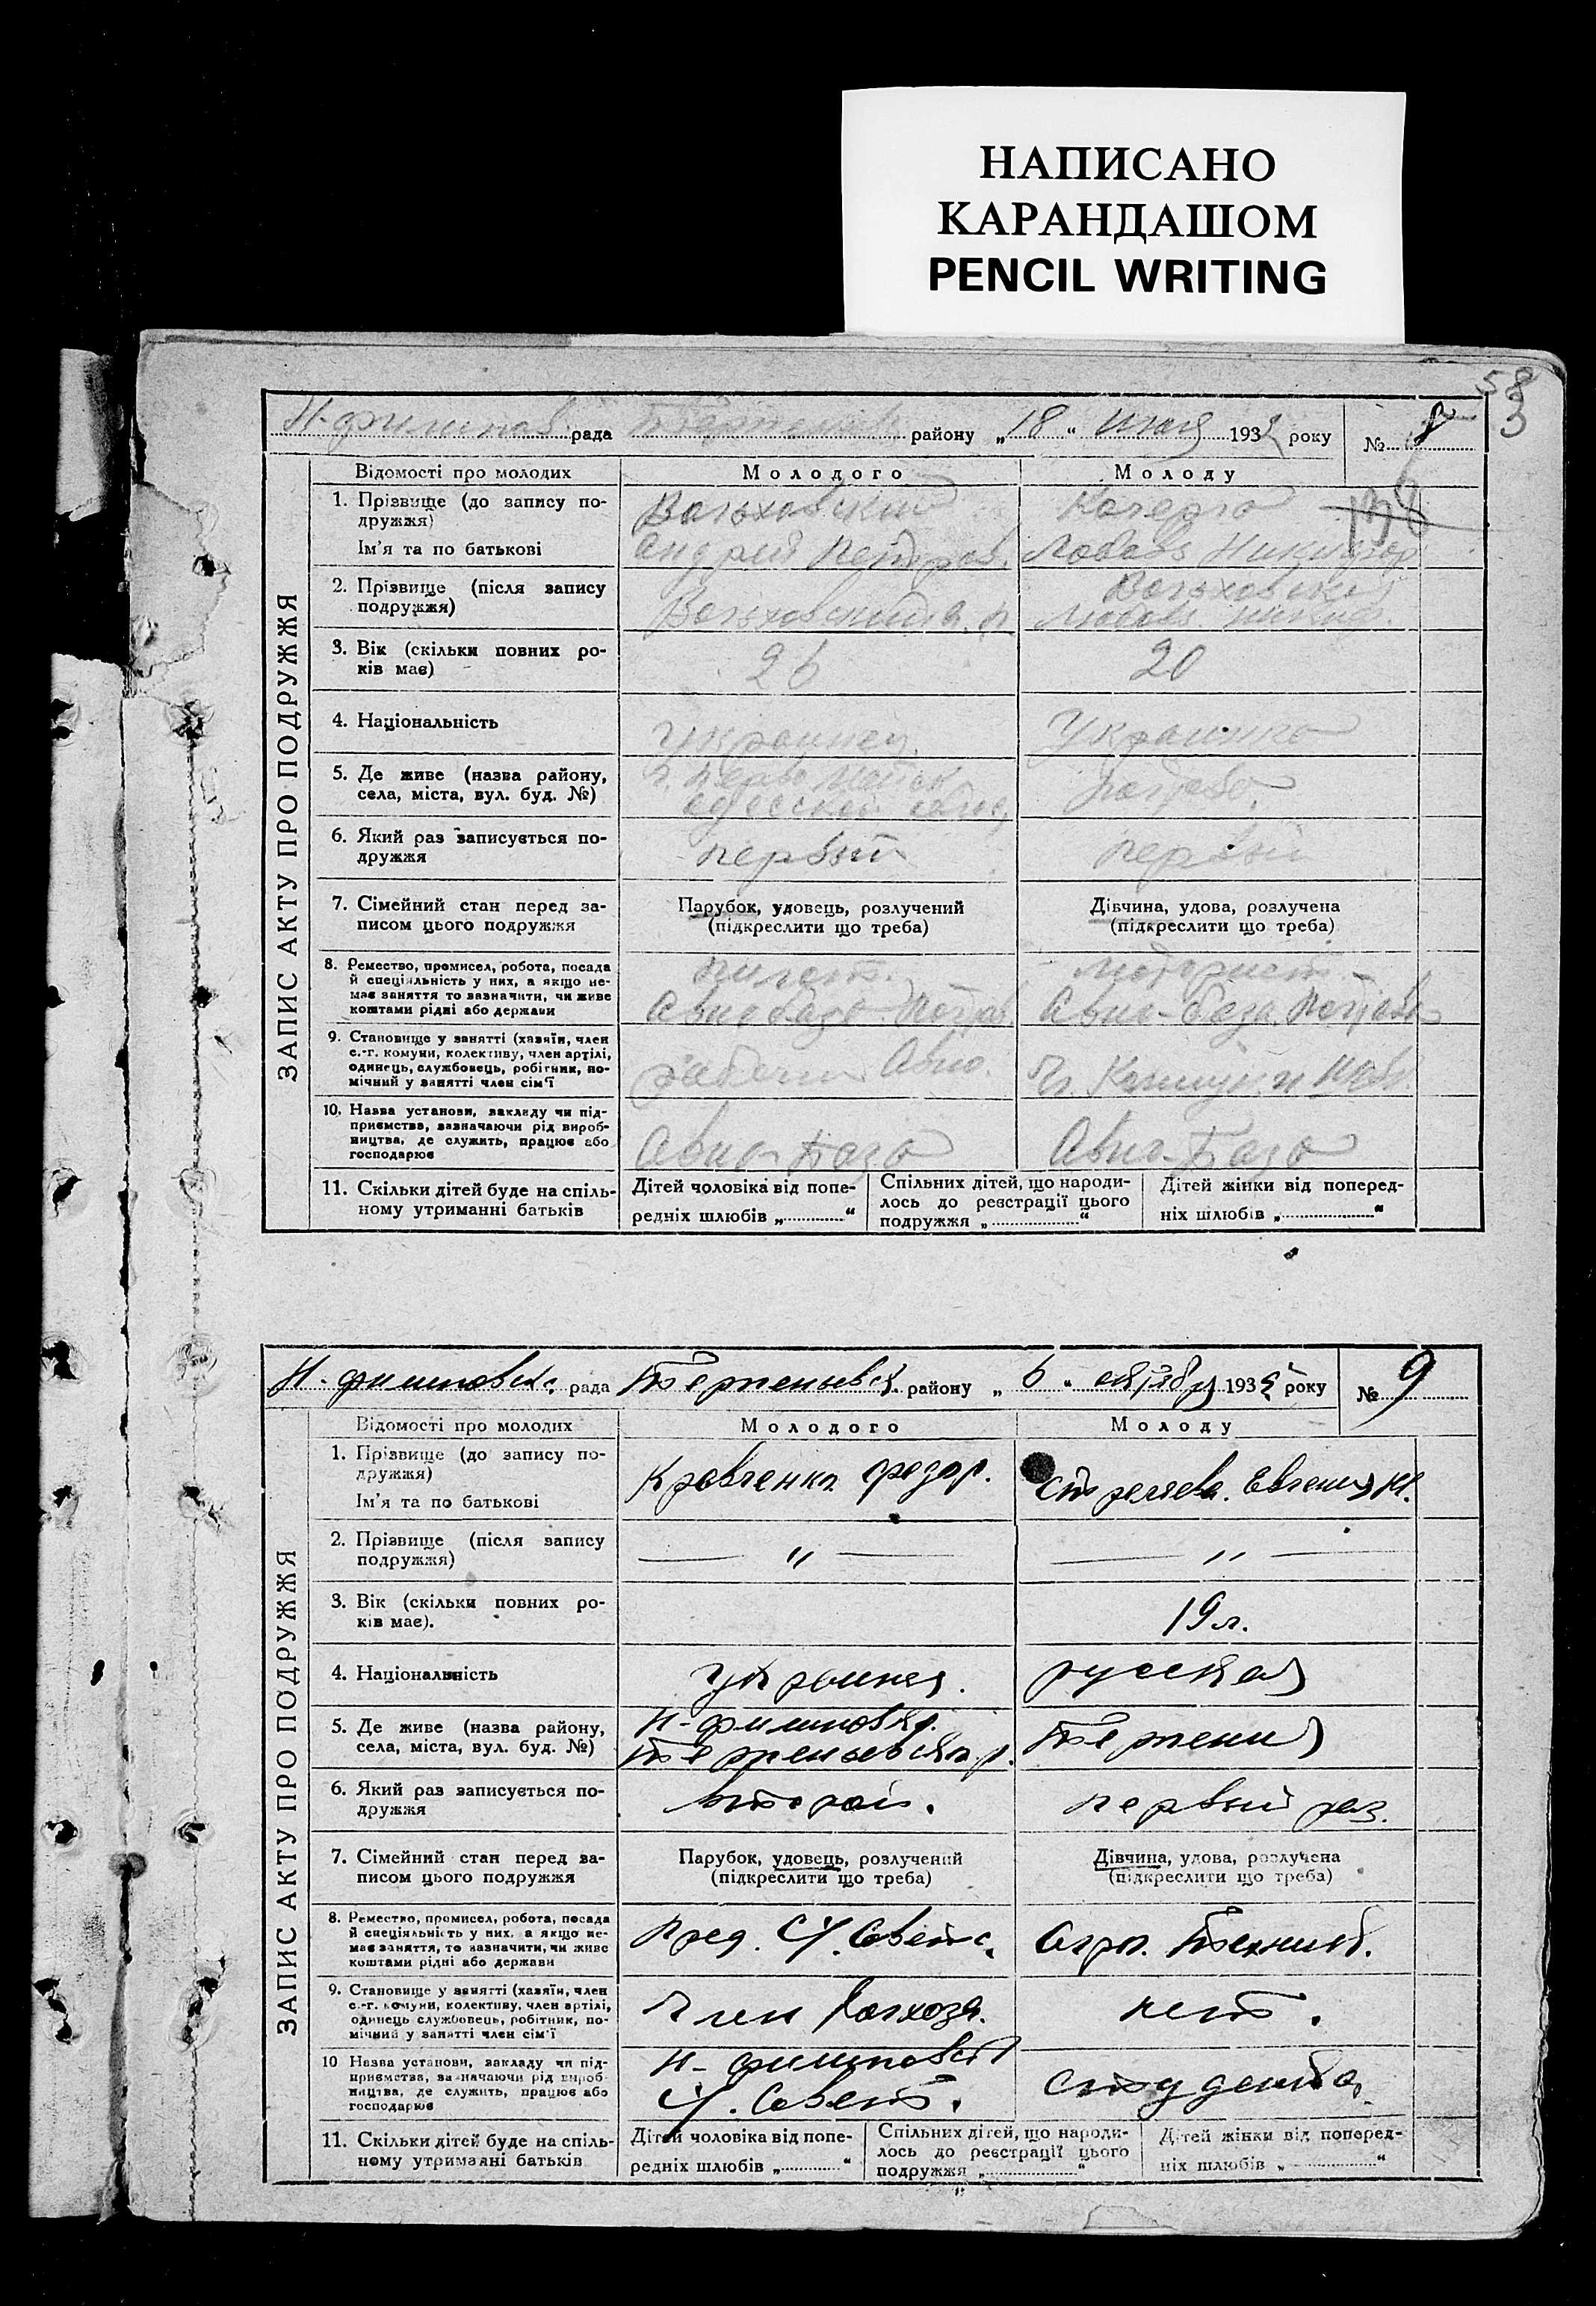 НАПИСАНО
КАРАНДАШОМ
PENCIL WRITING
58
3
Н-филипов. рада району „18“ июля 193 року № 8
ЗАПИС АКТУ ПРО ПОДРУЖЖЯ
Відомості про молодих Молодого Молоду
1. Прізвище (до запису по-
дружжя)
Вольховский Кочерга
138
Ім'я та по батькові Андрей Петров. Любовь Никифор
2. Прізвище (після запису
подружжя)
Вольховский А. П. Любовь Никиф.
3. Вік (скільки повних ро-
ків має)
26 20
4. Національність Украинец Украинка
5. Де живе (назва району,
села, міста, вул. буд. №)
г. Первомайск
одесской Полтава.
6. Який раз записується по-
дружжя
первый первый
7. Сімейний стан перед за-
писом цього подружжя
Парубок, удовець, розлучений
(підкреслити що треба)
Дівчина, удова, розлучена
(підкреслити що треба)
8. Ремество, промисел, робота, посада
й спеціяльність у них, а якщо не-
має заняття то зазначити, чи живе
коштами рідні або держави
пилот. моторист
Авиобаза Полтав Авио-база Полтава
9. Становище у занятті (хазяїн, член
с.-г. комуни, колективу, член артілі,
одинець, службовець, робітник, по-
мічний у занятті член сім'ї
рабочий Авио.
10. Назва установи, закладу чи під-
приємства, зазначаючи рід вироб-
ництва, де служить, працює або
господарює
Авио-База Авио-База
11. Скільки дітей буде на спіль-
ному утриманні батьків
Дітей чоловіка від попе-
редніх шлюбів „ “
Спільних дітей, що народи-
лось до реєстрації цього
подружжя „ “
Дітей жінки від поперед-
ніх шлюбів „ “
Н-филиповск. рада района „6“ октября 193 року № 9
ЗАПИС АКТУ ПРО ПОДРУЖЖЯ
Відомості про молодих Молодого Молоду
1. Прізвище (до запису по-
дружжя)
Ім'я та по батькові
Кравченко Стреляева. Евгения
2. Прізвище (після запису
подружжя)
— „ — — „ —
3. Вік (скільки повних ро-
ків має).
19 л.
4. Національність Украинец. русская
5. Де живе (назва району,
села, міста, вул. буд. №)
Н-филиповка
Терпение
6. Який раз записується по-
дружжя
второй. первый раз.
7. Сімейний стан перед за-
писом цього подружжя
Парубок, удовець, розлучений
(підкреслити що треба)
Дівчина, удова, розлучена
(підкреслити що треба)
8. Ремество, промисел, робота, посада
й спеціяльність у них, а якщо не-
має заняття, то зазначити, чи живе
коштами рідні або держави
Пред. С/Совета. Агро. Техник.
9. Становище у занятті (хазяїн, член
с.-г. комуни, колективу, член артілі,
одинець службовець, робітник, по-
мічний у занятті член сім'ї
Член Колхоза. нет.
10 Назва установи, закладу чи під-
приємства, зазначаючи рід вироб-
ництва, де служить, працює або
господарює
Н-филиповский
С/Совет. студентка.
11. Скільки дітей буде на спіль-
ному утриманні батьків
Дітей чоловіка від попе-
редніх шлюбів „ “
Спільних дітей, що народи-
лось до реєстрації цього
подружжя „ “
Дітей жінки від поперед-
ніх шлюбів „ “